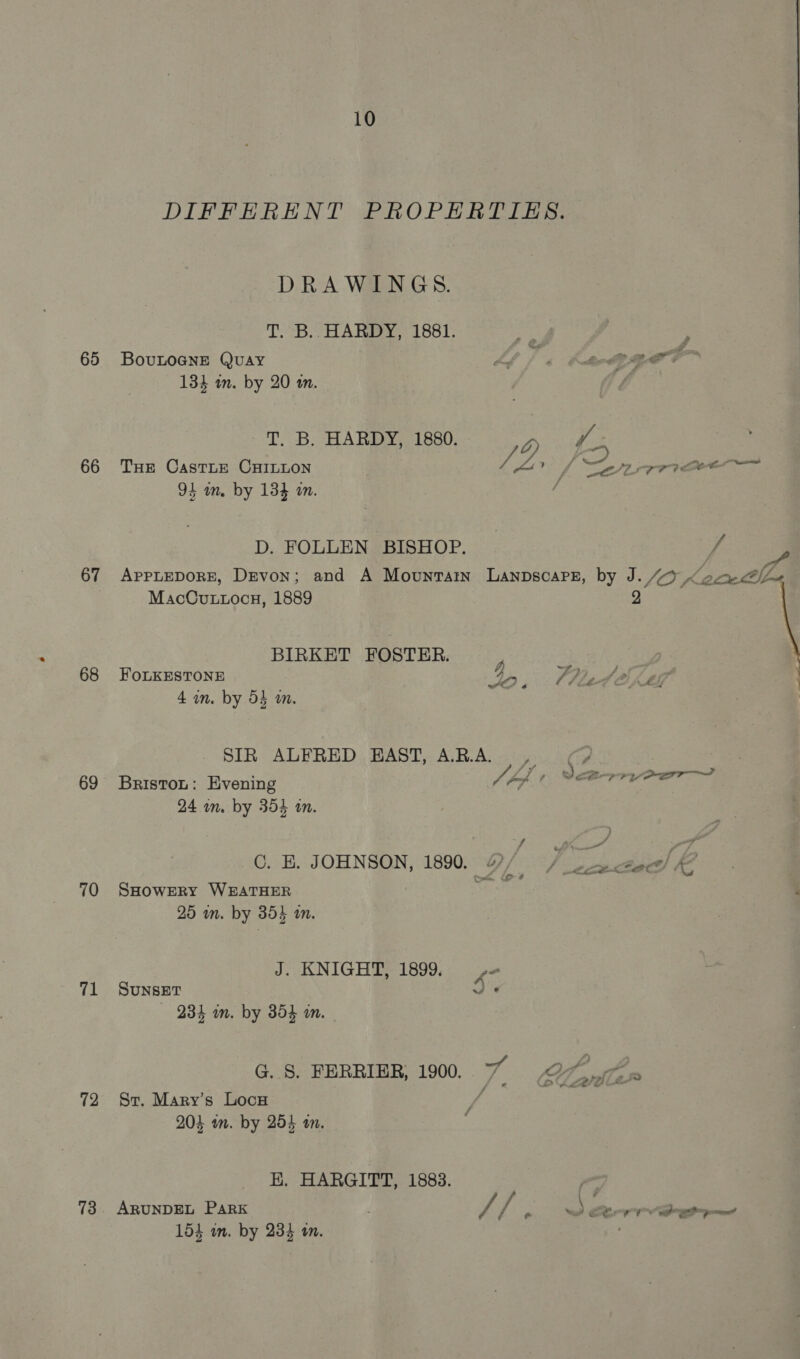 10
DIFFERENT PROPERTIES.
DRAWINGS.
T. B. HARDY, 1881.
65 BOULOGNE QUAY
13½ in. by 20 in.
T. B. HARDY, 1880.
66 THE CASTLE CHILLON 12.
9½ in. by 13½ in.
D. FOLLEN BISHOP.
67 APPLEDORE, DEVON; and A MOUNTAIN LANDSCAPE, by J. 10
MACCULLOCH, 1889 2
BIRKET FOSTER.
68 FOLKESTONE
4 in. by 5½ in.
SIR ALFRED EAST, A.R.A.
69 BRISTOL: Evening
24 in. by 35½ in.
C. E. JOHNSON, 1890.
70 SHOWERY WEATHER
25 in. by 35½ in.
J. KNIGHT, 1899.
71 SUNSET 5.
23½ in. by 35½ in.
G. S. FERRIER, 1900. 7.
72 ST. MARY'S LOCH
20½ in. by 25½ in.
E. HARGITT, 1883.
73 ARUNDEL PARK 11.
15½ in. by 23½ in.